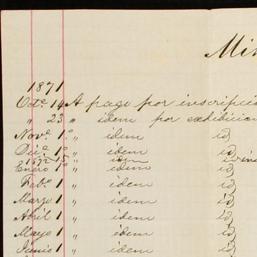 Min
1871
Octe. 14 A pago por inscripció
" 23 " idem por exhibició
Nove. 1º " idem id
Dice. 1º " idem id
1872 15 " idem id
Enero 1 " idem id
Febo. 1 " idem id
Marzo 1 " idem id
Abril 1 " idem id
Mayo 1 " idem id
Junio 1 " idem id